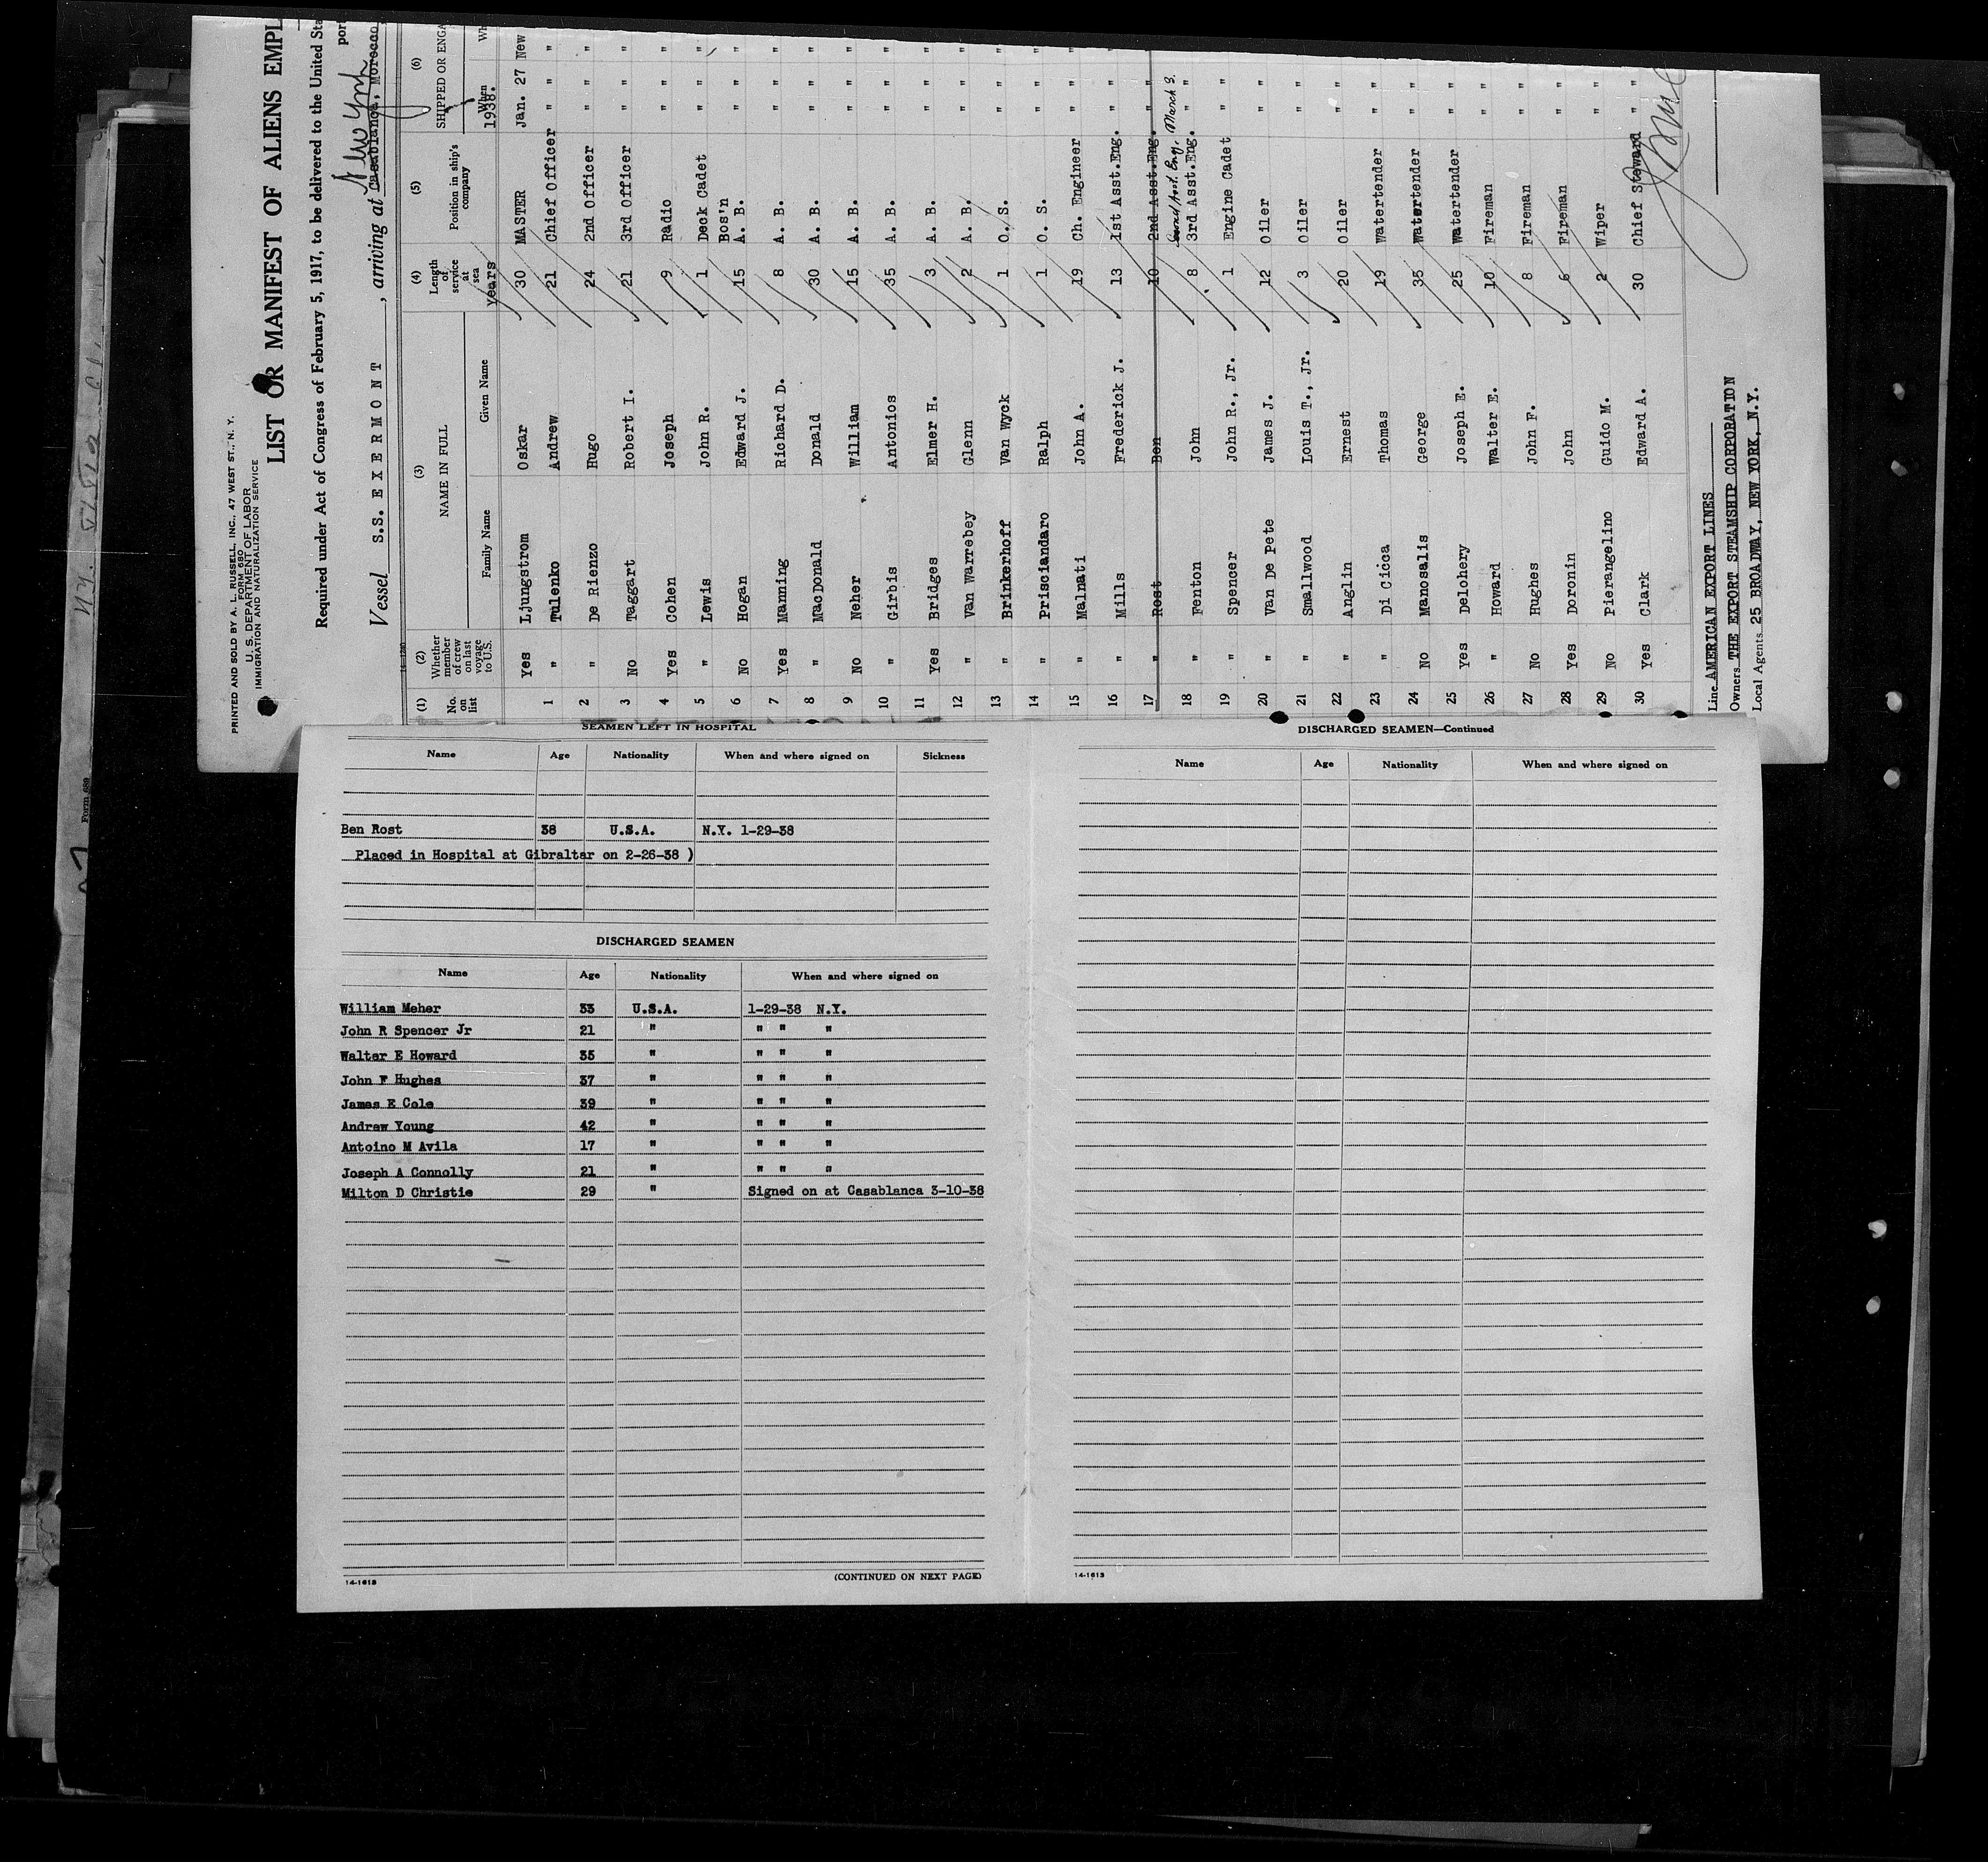 PRINTED AND SOLD BY A. L. RUSSELL, INC., 47 WEST ST., N. Y.
FORM 680
U. S. DEPARTMENT OF LABOR
IMMIGRATION AND NATURALIZATION SERVICE
LIST OR MANIFEST OF ALIENS EMPL
Required under Act of Congress of February 5, 1917, to be delivered to the United Sta
Vessel S.S. EXERMONT, arriving at Casablanca, Morocco, New York
(1) (2) (3) (4) (5) (6)
No. on list Whether member of crew on last voyage to U.S. NAME IN FULL Length of service at sea Position in ship's company SHIPPED OR ENGA
Family Name Given Name Years When 1938.
Yes Ljungstrom Oskar 30 MASTER Jan. 27 New
1 " Tulenko Andrew 21 Chief Officer " " "
2 " De Rienzo Hugo 24 2nd Officer " " "
3 No Taggart Robert I. 21 3rd Officer " " "
4 Yes Cohen Joseph 9 Radio " " "
5 " Lewis John R. 1 Deck Cadet " " "
Bos'n
6 No Hogan Edward J. 15 A. B. " " "
7 Yes Manning Richard D. 8 A. B. " " "
8 " MacDonald Donald 30 A. B. " " "
9 No Neher William 15 A. B. " " "
10 " Girbis Antonios 35 A. B. " " "
11 Yes Bridges Elmer H. 3 A. B. " " "
12 " Van Warrebey Glenn 2 A. B. " " "
13 " Brinkerhoff Van Wyck 1 O. S. " " "
14 " Prisciandaro Ralph 1 O. S. " " "
15 " Malnati John A. 19 Ch. Engineer " " "
16 " Mills Frederick J. 13 1st Asst.Eng. " " "
17 " Rost Ben 10 2nd Asst.Eng. " " "
Asst. Eng. March 3.
18 " Fenton John 8 3rd Asst.Eng. " " "
19 " Spencer John R., Jr. 1 Engine Cadet " " "
20 " Van De Pete James J. 12 Oiler " " "
21 " Smallwood Louis T., Jr. 3 Oiler " " "
22 " Anglin Ernest 20 Oiler " " "
23 " Di Cicca Thomas 19 Watertender " " "
24 No Manosalis George 35 Watertender " " "
25 Yes Delohery Joseph E. 25 Watertender " " "
26 " Howard Walter E. 10 Fireman " " "
27 No Hughes John F. 8 Fireman " " "
28 Yes Doronin John 6 Fireman " " "
29 No Pierangelino Guido M. 2 Wiper " " "
30 Yes Clark Edward A. 30 Chief Steward " " "
Line AMERICAN EXPORT LINES
Owners THE EXPORT STEAMSHIP CORPORATION
Local Agents 25 BROADWAY, NEW YORK, N.Y.
Form 689
SEAMEN LEFT IN HOSPITAL
Name Age Nationality When and where signed on Sickness
Ben Rost 38 U.S.A. N.Y. 1-29-38
Placed in Hospital at Gibraltar on 2-26-38 )
DISCHARGED SEAMEN
Name Age Nationality When and where signed on
William Meher 33 U.S.A. 1-29-38 N.Y.
John R Spencer Jr 21 " " " "
Walter E Howard 35 " " " "
John F Hughes 37 " " " "
James E Cole 39 " " " "
Andrew Young 42 " " " "
Antoino M Avila 17 " " " "
Joseph A Connolly 21 " " " "
Milton D Christie 29 " Signed on at Casablanca 3-10-38
14-1613
(CONTINUED ON NEXT PAGE)
DISCHARGED SEAMEN—Continued
Name Age Nationality When and where signed on
14-1613